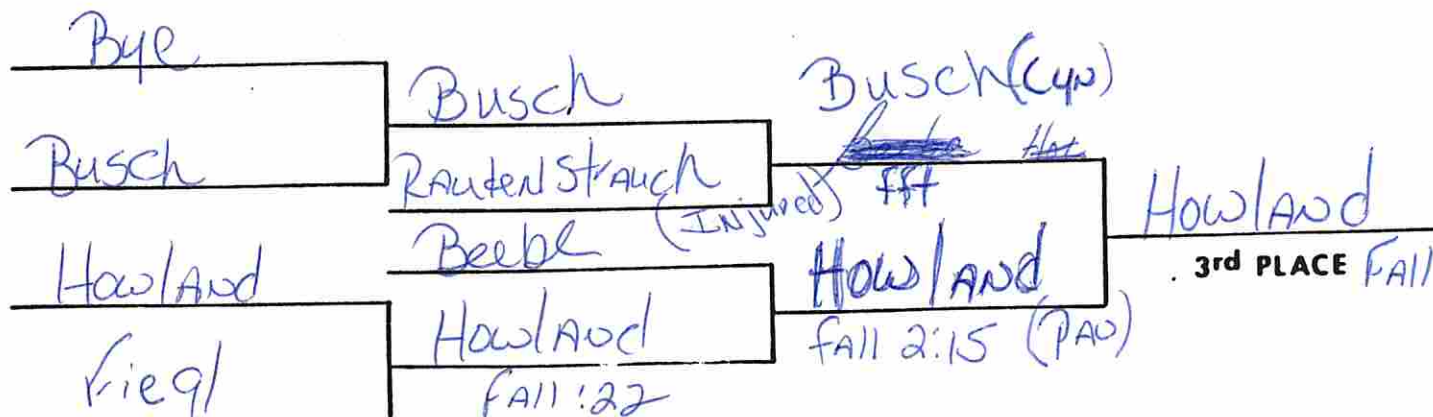 Bye
Busch
Howland
Fiegl
Busch
Rautenstrauch
(Injured)
Beebe
Howland
Fall :22
Busch (Cyn)
fft
Howland
Fall 2:15 (PAU)
Howland
3rd PLACE Fall